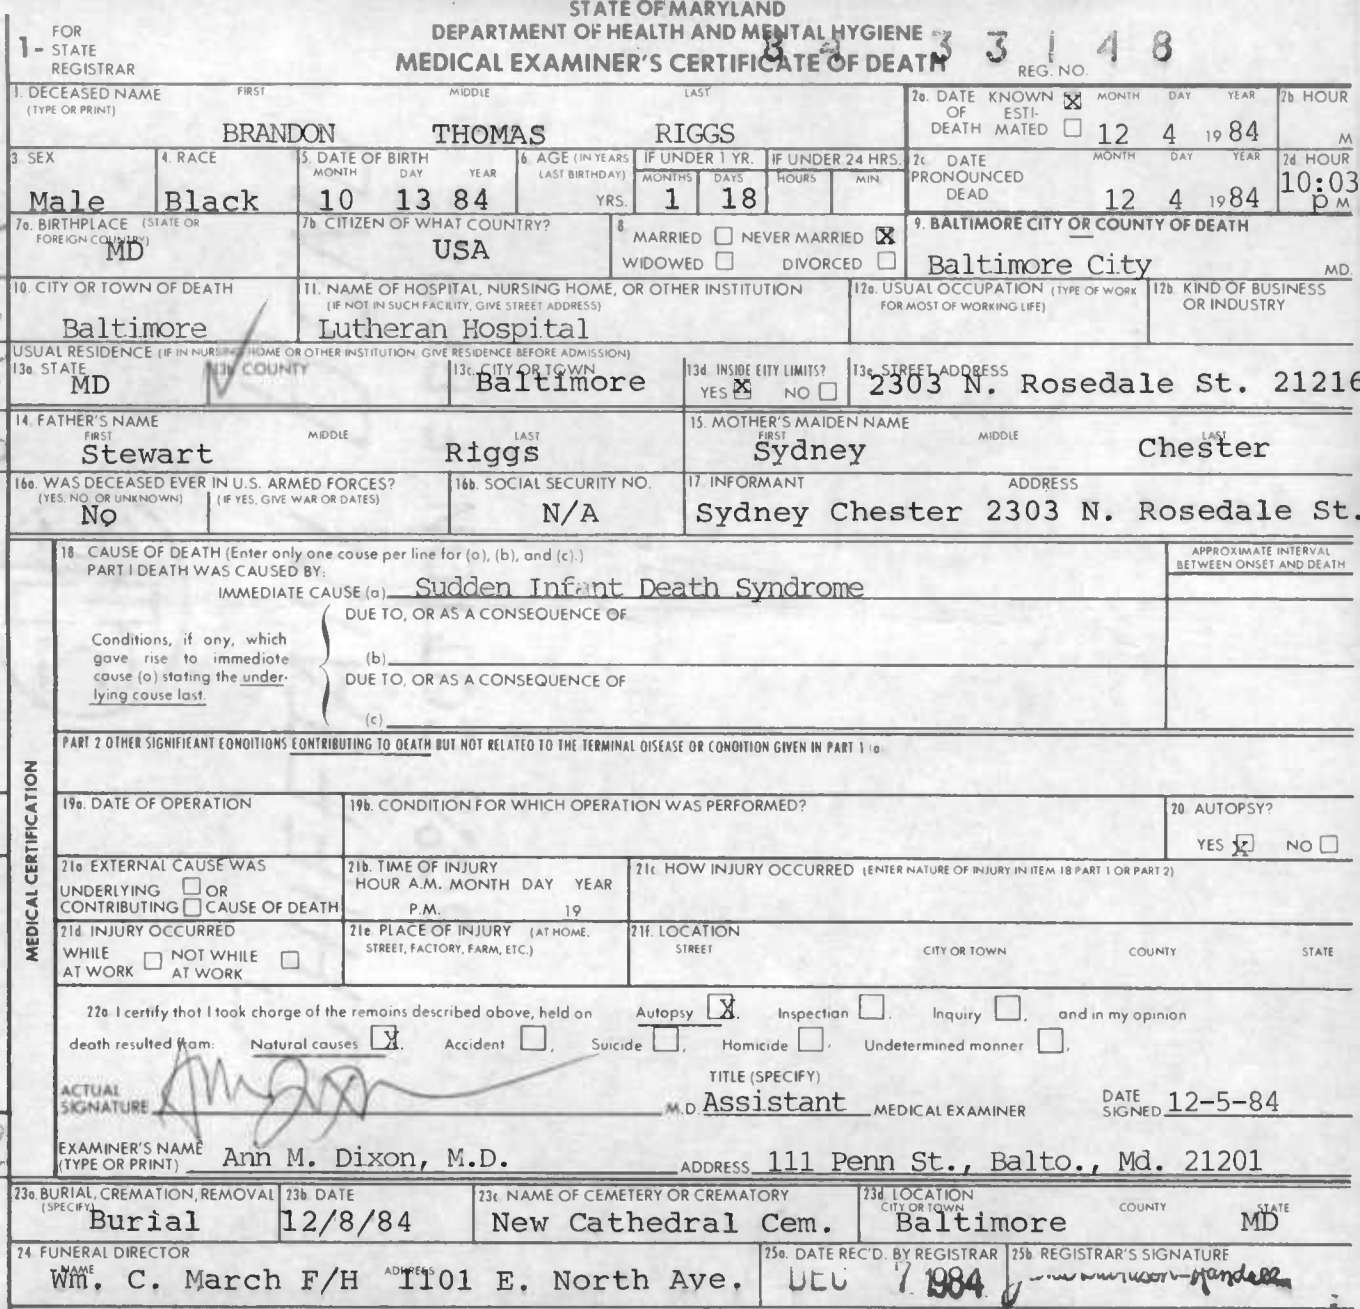 STATE OF MARYLAND
DEPARTMENT OF HEALTH AND MENTAL HYGIENE
MEDICAL EXAMINER'S CERTIFICATE OF DEATH
1- FOR STATE REGISTRAR
33148
REG. NO.
1. DECEASED NAME (TYPE OR PRINT) FIRST MIDDLE LAST
BRANDON THOMAS RIGGS
2a. DATE OF DEATH KNOWN X ESTIMATED MONTH DAY YEAR 12 4 1984
2b HOUR M
3 SEX Male
4. RACE Black
5. DATE OF BIRTH MONTH DAY YEAR 10 13 84
6 AGE (IN YEARS LAST BIRTHDAY) YRS.
IF UNDER 1 YR. MONTHS DAYS 1 18
IF UNDER 24 HRS. HOURS MIN.
2c DATE PRONOUNCED DEAD MONTH DAY YEAR 12 4 1984
2d HOUR 10:03 p M
7a. BIRTHPLACE (STATE OR FOREIGN COUNTRY) MD
7b CITIZEN OF WHAT COUNTRY? USA
8 MARRIED NEVER MARRIED X
WIDOWED DIVORCED
9. BALTIMORE CITY OR COUNTY OF DEATH
Baltimore City MD.
10. CITY OR TOWN OF DEATH Baltimore
11. NAME OF HOSPITAL, NURSING HOME, OR OTHER INSTITUTION
(IF NOT IN SUCH FACILITY, GIVE STREET ADDRESS)
Lutheran Hospital
12a. USUAL OCCUPATION (TYPE OF WORK FOR MOST OF WORKING LIFE)
12b. KIND OF BUSINESS OR INDUSTRY
USUAL RESIDENCE (IF IN NURSING HOME OR OTHER INSTITUTION GIVE RESIDENCE BEFORE ADMISSION)
13a STATE MD
13b COUNTY
13c. CITY OR TOWN Baltimore
13d INSIDE CITY LIMITS? YES X NO
13e STREET ADDRESS 2303 N. Rosedale St. 21216
14. FATHER'S NAME FIRST MIDDLE LAST
Stewart Riggs
15. MOTHER'S MAIDEN NAME FIRST MIDDLE LAST
Sydney Chester
16a. WAS DECEASED EVER IN U.S. ARMED FORCES?
(YES, NO, OR UNKNOWN) (IF YES, GIVE WAR OR DATES)
No
16b. SOCIAL SECURITY NO. N/A
17 INFORMANT ADDRESS
Sydney Chester 2303 N. Rosedale St.
MEDICAL CERTIFICATION
18 CAUSE OF DEATH (Enter only one cause per line for (a), (b), and (c).)
PART I DEATH WAS CAUSED BY:
APPROXIMATE INTERVAL BETWEEN ONSET AND DEATH
IMMEDIATE CAUSE (a) Sudden Infant Death Syndrome
DUE TO, OR AS A CONSEQUENCE OF
Conditions, if any, which gave rise to immediate cause (a) stating the underlying cause last.
(b)
DUE TO, OR AS A CONSEQUENCE OF
(c)
PART 2 OTHER SIGNIFICANT CONDITIONS CONTRIBUTING TO DEATH BUT NOT RELATED TO THE TERMINAL DISEASE OR CONDITION GIVEN IN PART 1 (a)
19a. DATE OF OPERATION
19b. CONDITION FOR WHICH OPERATION WAS PERFORMED?
20 AUTOPSY? YES X NO
21a EXTERNAL CAUSE WAS
UNDERLYING OR
CONTRIBUTING CAUSE OF DEATH
21b. TIME OF INJURY
HOUR A.M. MONTH DAY YEAR
P.M. 19
21c HOW INJURY OCCURRED (ENTER NATURE OF INJURY IN ITEM 18 PART 1 OR PART 2)
21d INJURY OCCURRED
WHILE AT WORK NOT WHILE AT WORK
21e PLACE OF INJURY (AT HOME, STREET, FACTORY, FARM, ETC.)
21f. LOCATION
STREET CITY OR TOWN COUNTY STATE
22a I certify that I took charge of the remains described above, held on Autopsy X. Inspection , Inquiry , and in my opinion
death resulted from: Natural causes X. Accident , Suicide , Homicide , Undetermined manner .
ACTUAL SIGNATURE M.D.
TITLE (SPECIFY) Assistant MEDICAL EXAMINER
DATE SIGNED 12-5-84
EXAMINER'S NAME (TYPE OR PRINT) Ann M. Dixon, M.D.
ADDRESS 111 Penn St., Balto., Md. 21201
23a. BURIAL, CREMATION, REMOVAL (SPECIFY) Burial
23b DATE 12/8/84
23c NAME OF CEMETERY OR CREMATORY New Cathedral Cem.
23d LOCATION CITY OR TOWN COUNTY STATE
Baltimore MD
24 FUNERAL DIRECTOR
NAME Wm. C. March F/H ADDRESS 1101 E. North Ave.
25a. DATE REC'D. BY REGISTRAR DEC 7 1984
25b. REGISTRAR'S SIGNATURE